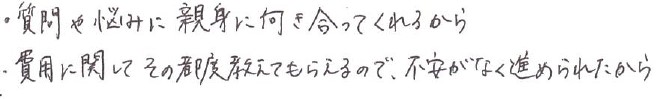 ・質問や悩みに親身に向き合ってくれるから
・費用に関してその都度教えてもらえるので、不安がなく進められたから